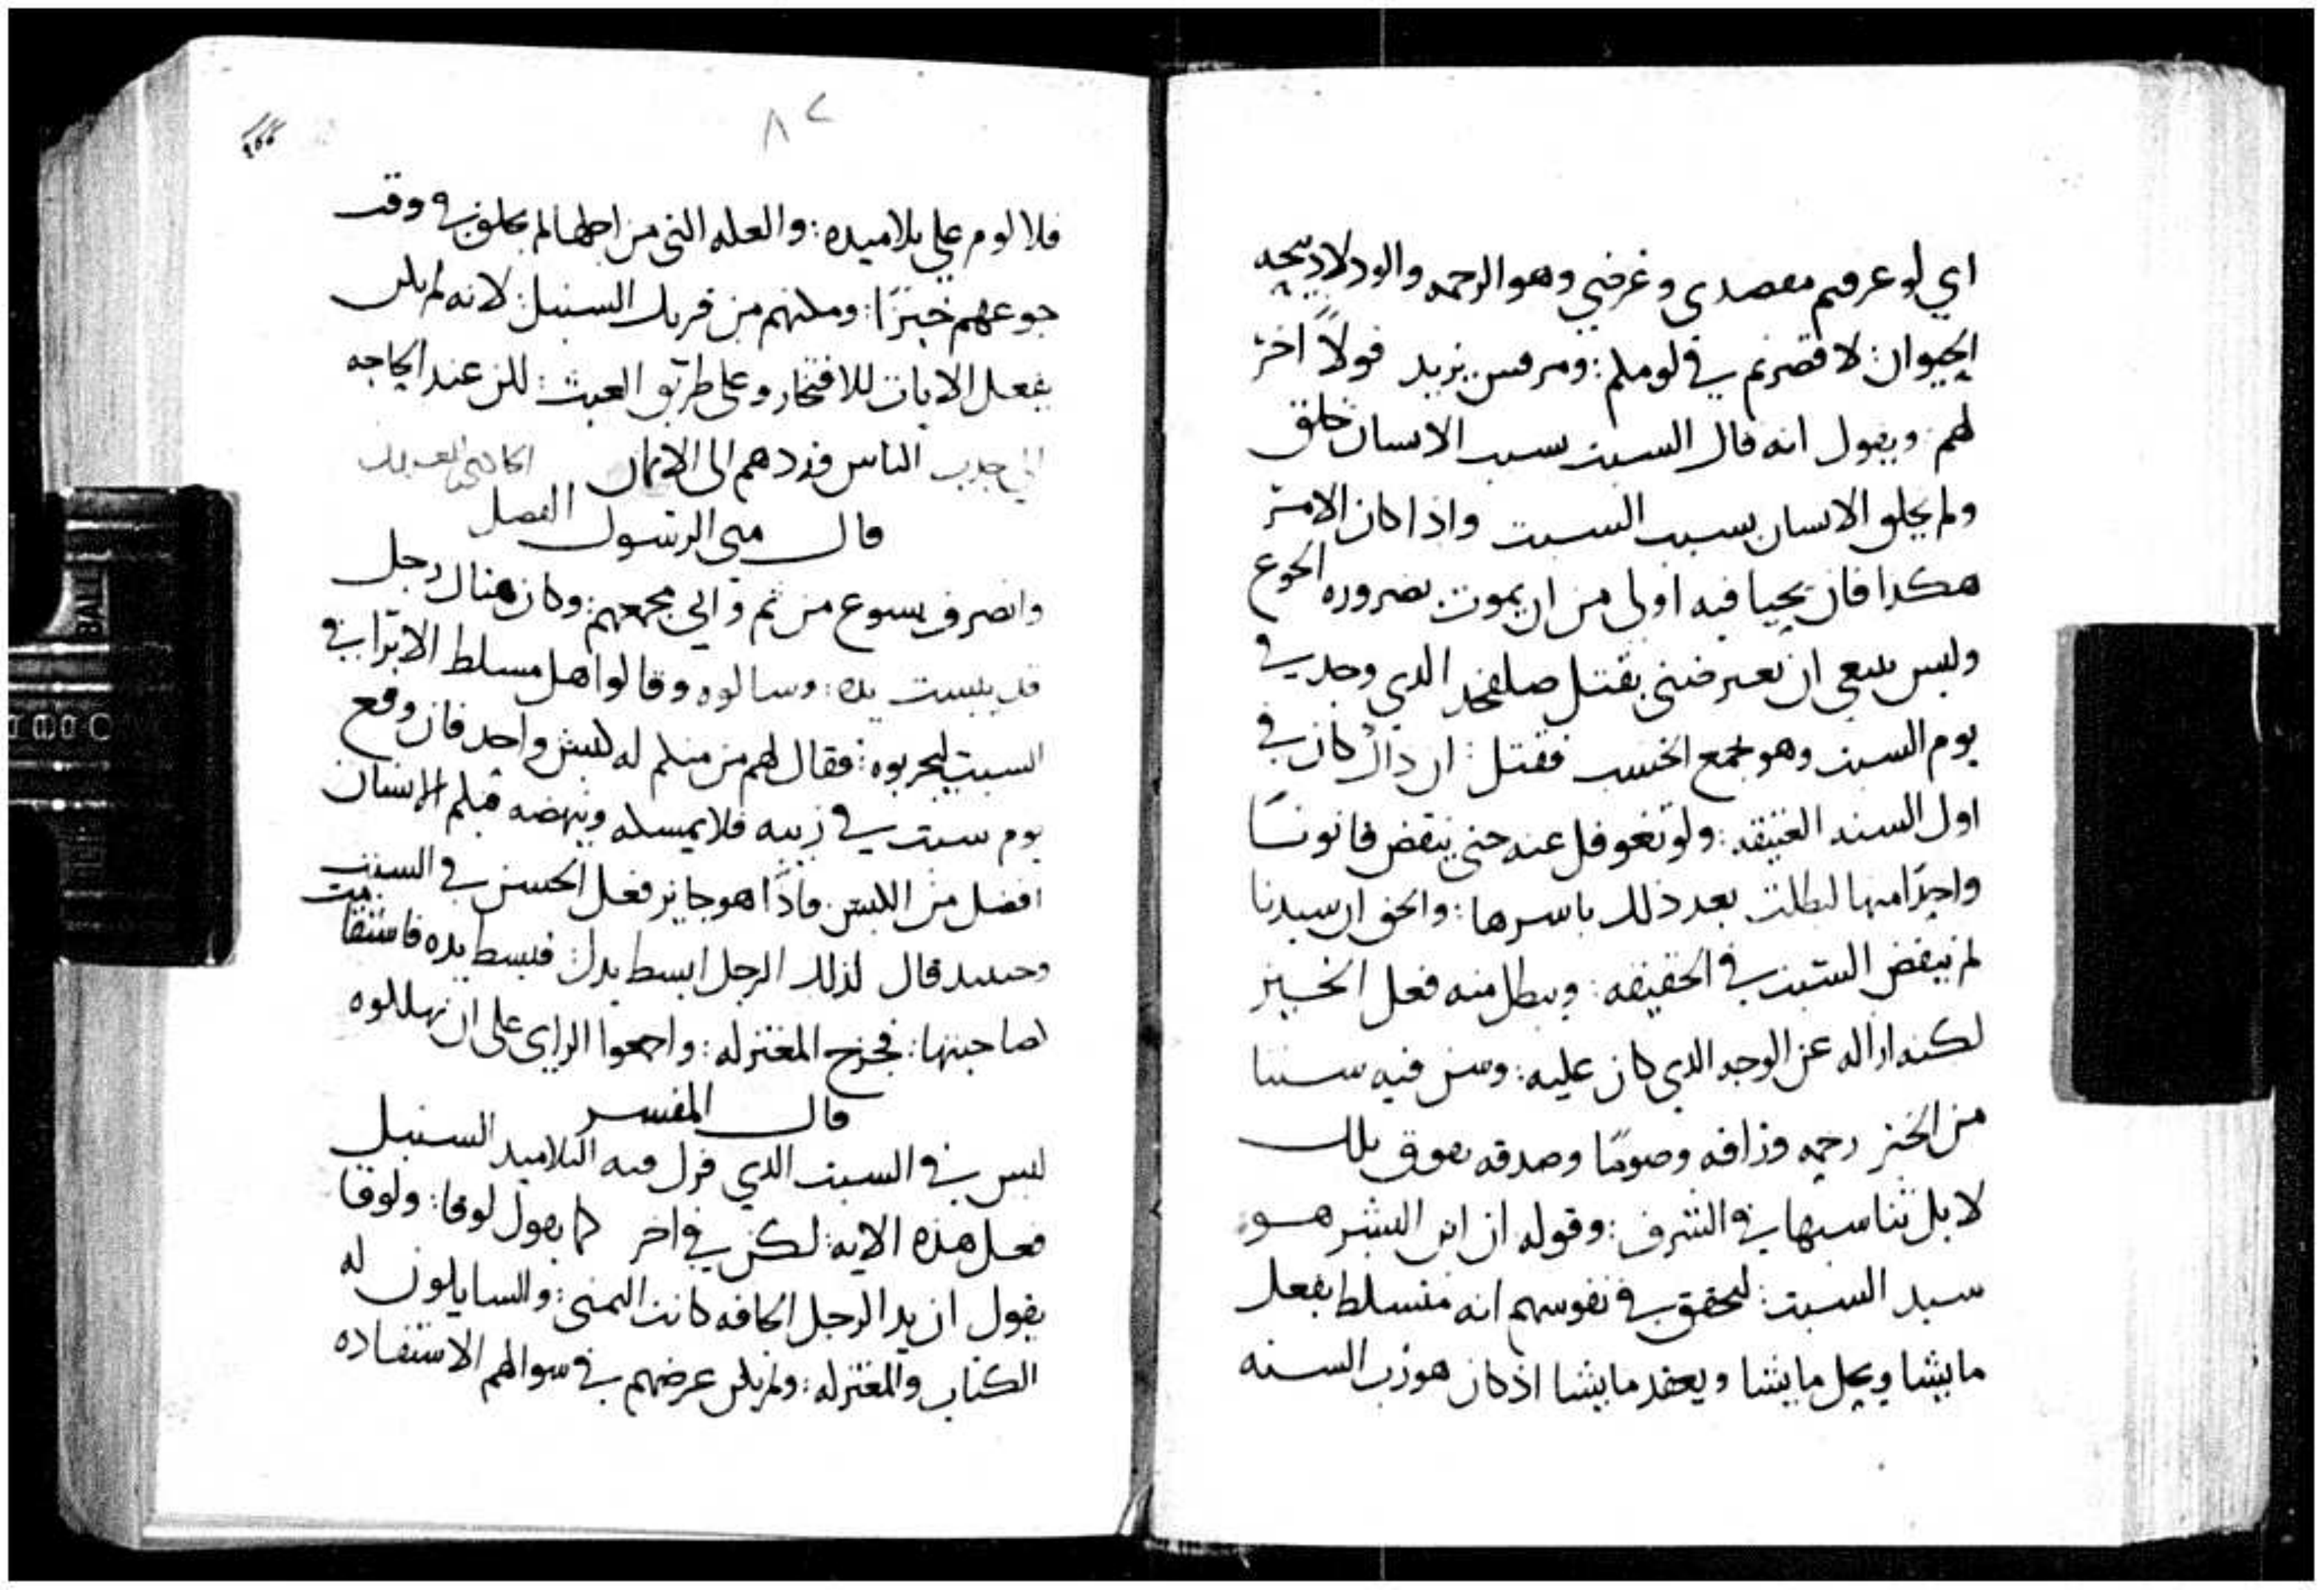 اي لو عرفتم مقصدي وغرضي وهو الرحمه والود لا دبيحه
الحيوان: لا قصرتم في لومكم: ومرقس يزيد قولاً اخر
لهم ويقول انه قال السبت بسبب الانسان خلق
ولم يخلق الانسان بسبب السبت واذا كان الامر
هكدا فان يحيا فيه اولى من ان يموت بضروره الجوع
وليس ينبغي ان تعترضني بقتل صلفحد الدي وجد في
يوم السبت وهو يجمع الخشب فقتل: ان داك كان في
اول السنه العتيقه: ولو تغوفل عنه حتى ينقض قانونًا
واحدًا منها لبطلت بعد ذلك باسرها: والحق ان سيدنا
لم ينقض السبت في الحقيقه: ويبطل منه فعل الخير
لكنه ازاله عن الوجه الدي كان عليه: وسن فيه سننا
من الخير رحمه ورافه وصومًا وصدقه تفوق تلك
لا بل تناسبها في الشرف: وقوله ان ابن البشر هو
سيد السبت: ليحقق في نفوسهم انه متسلط يفعل
ما يشا ويحل ما يشا ويعقد ما يشا اذ كان هو رب السنه
٨٢
فلا لوم علي تلاميده: والعله التي من اجلها لم يخلق في وقت
جوعهم خبزًا: ومكنهم من فريك السنبل: لانه لم يكن
يفعل الايات للافتخار وعلى طريق العبث: لكن عند الحاجه
الي جدب الناس وردهم الى الايمان
الفصل
قال متى الرسول
وانصرف يسوع من ثم واتى مجمعهم: وكان هناك رجل
قد يبست يده: وسالوه وقالوا هل مسلط الابرا في
السبت ليجربوه: فقال لهم من منكم له كبش واحد فان وقع
يوم سبت في زبيه فلا يمسكه وينهضه فبكم الانسان
افضل من الكبش. فاذًا هو جايز فعل الحسن في السبت
وحينيد قال لذلك الرجل ابسط يدك: فبسط يده فاستقامت
لصاحبتها: فخرج المعتزله: واجمعوا الراي على ان يهلكوه
قال المفسر
ليس في السبت الدي فرك فيه التلاميد السنبل
فعل هذه الايه: لكن في اخر كما يقول لوقا: ولوقا
يقول ان يد الرجل الجافه كانت اليمنى: والسايلون له
الكتاب والمعتزله: ولم يكن غرضهم في سوالهم الاستفاده